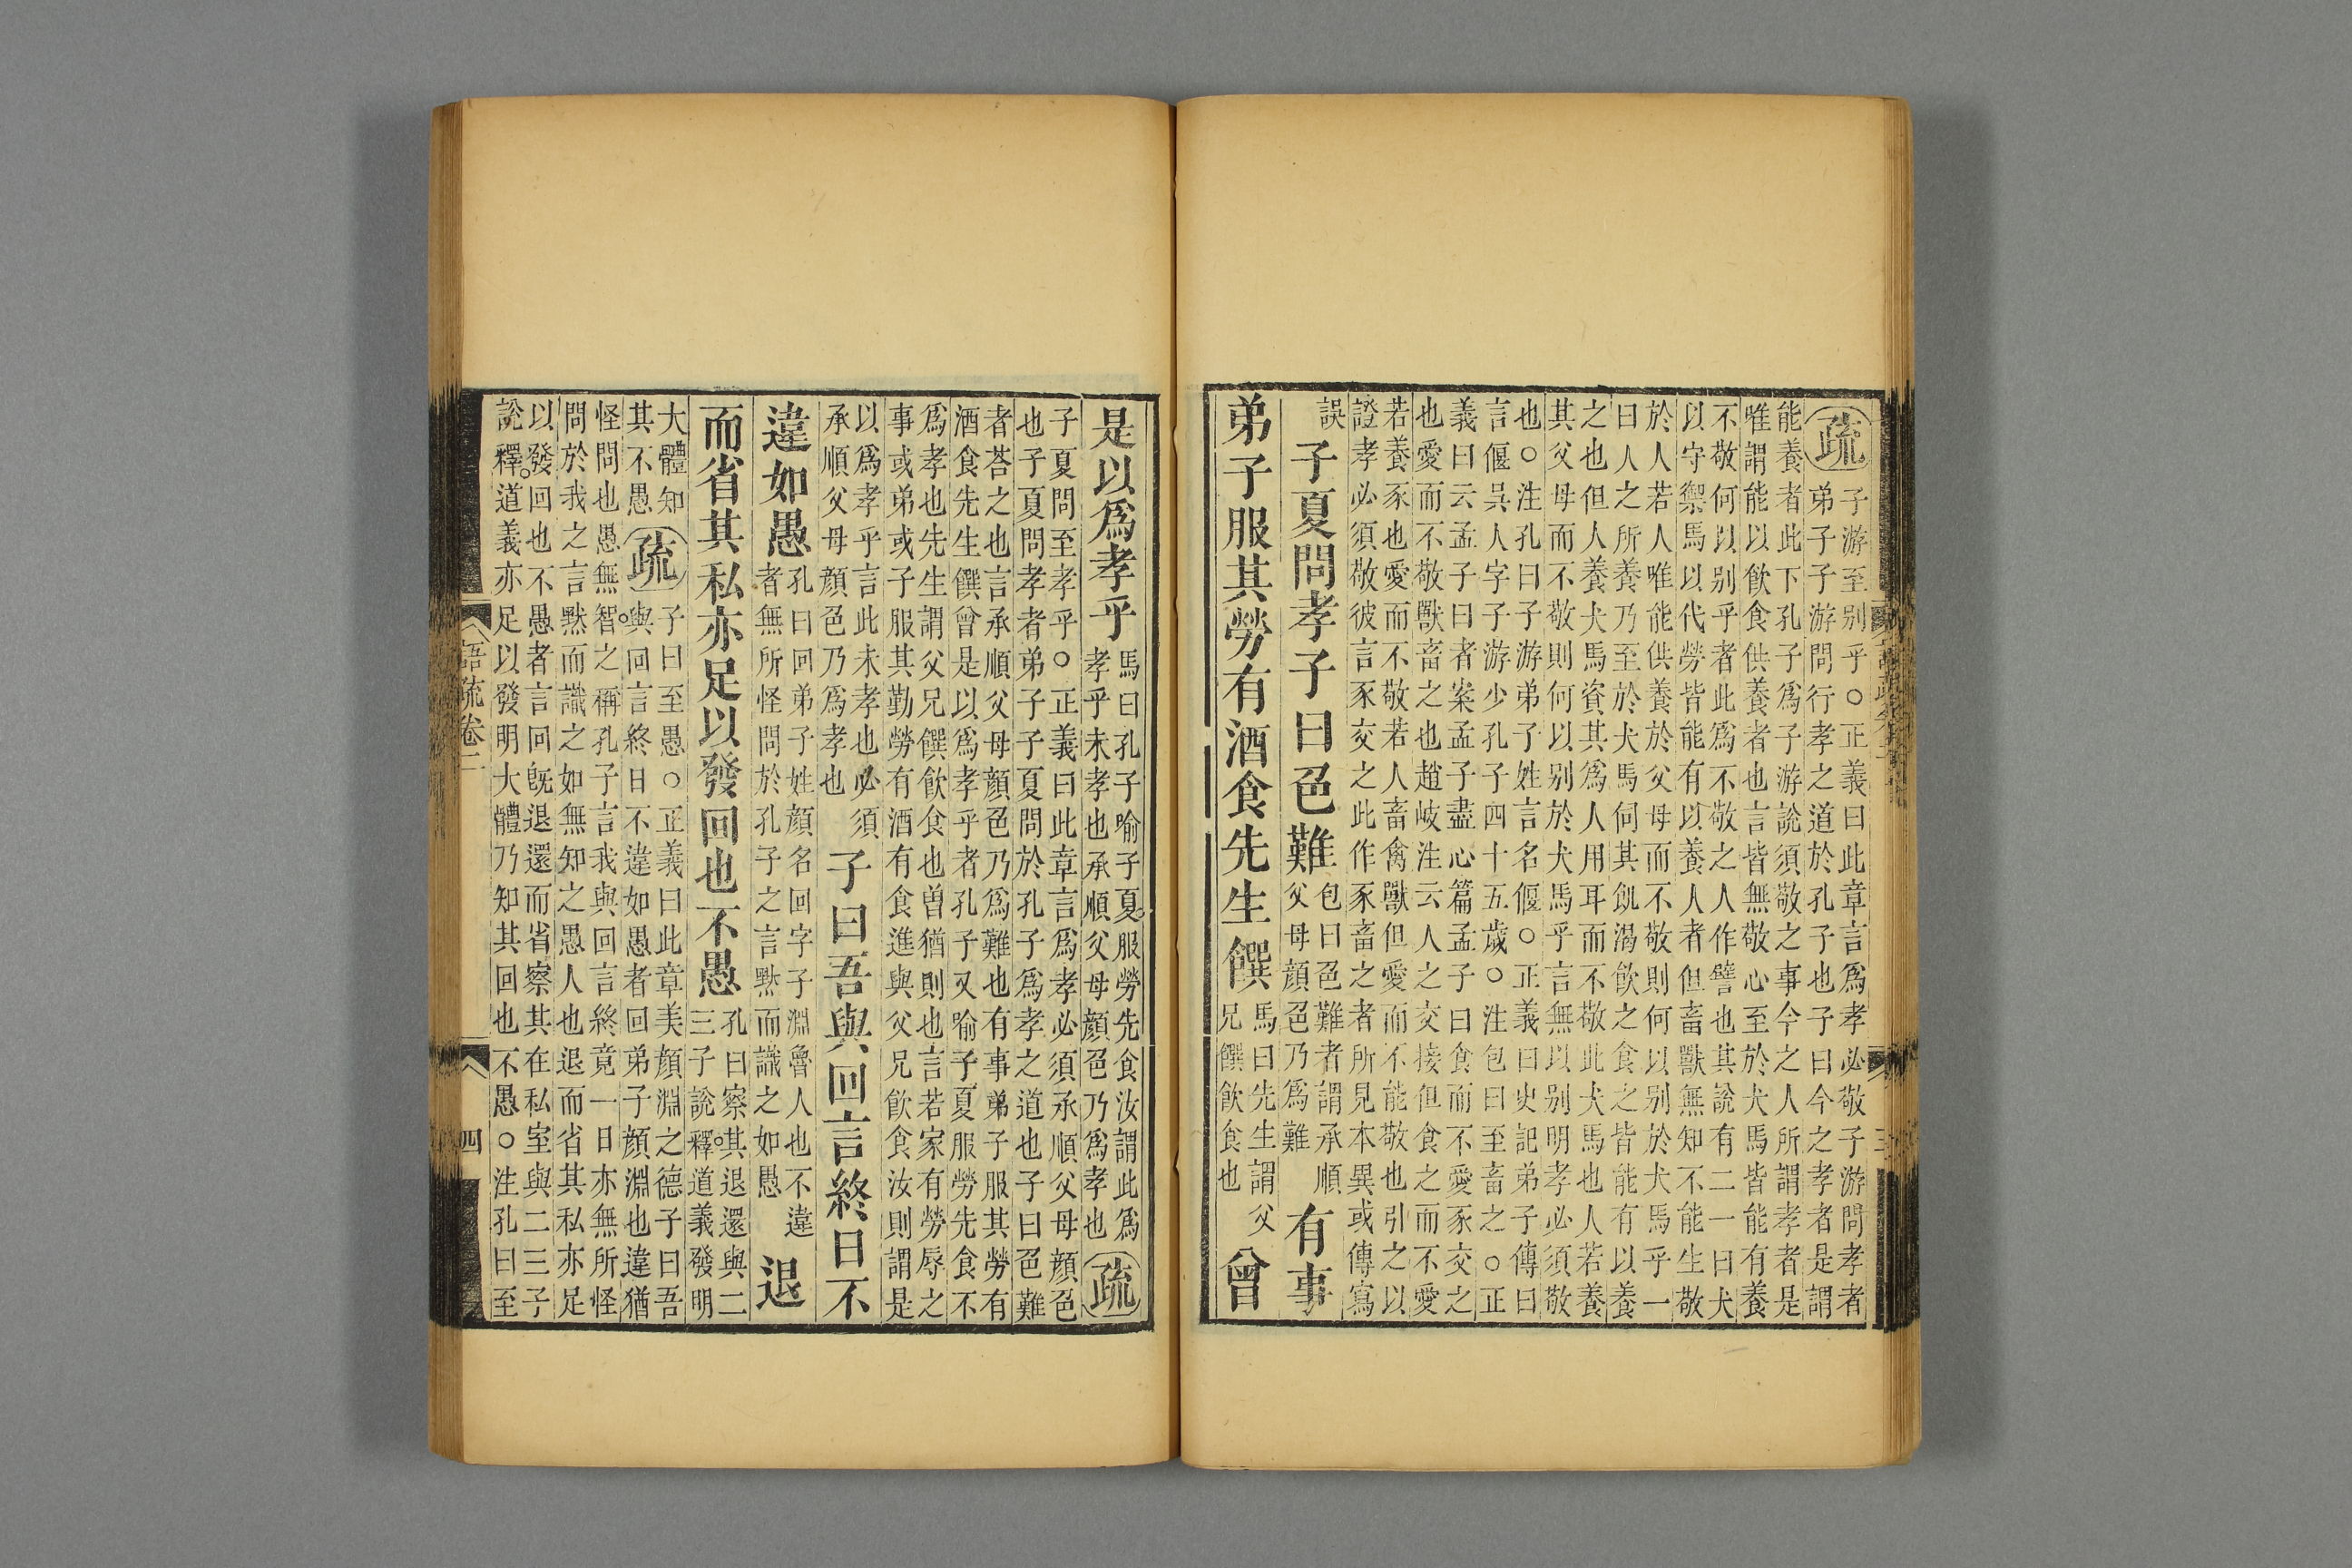 疏
子游至别乎○正義曰此章言爲孝必敬子游問孝者
弟子子游問行孝之道於孔子也子曰今之孝者是謂
能養者此下孔子爲子游說須敬之事今之人所謂孝者是
唯謂能以飲食供養者也言皆無敬心至於犬馬皆能有養
不敬何以别乎者此爲不敬之人作譬也其說有二一曰犬
以守禦馬以代勞皆能有以養人者但畜獸無知不能生敬
於人若人唯能供養於父母而不敬則何以别於犬馬乎一
曰人之所養乃至於犬馬伺其飢渴飲之食之皆能有以養
之也但人養犬馬資其爲人用耳而不敬此犬馬也人若養
其父母而不敬則何以别於犬馬乎言無以别明孝必須敬
也○注孔曰子游弟子姓言名偃○正義曰史記弟子傳曰
言偃吳人字子游少孔子四十五歲○注包曰至畜之○正
義曰云孟子曰者案孟子盡心篇孟子曰食而不愛豕交之
也愛而不敬獸畜之也趙岐注云人之交接但食之而不愛
若養豕也愛而不敬若人畜禽獸但愛而不能敬也引之以
證孝必須敬彼言豕交之此作豕畜之者所見本異或傳寫
誤
子夏問孝子曰色難
包曰色難者謂承順
父母顔色乃爲難
有事
弟子服其勞有酒食先生饌
馬曰先生謂父
兄饌飲食也
曾
是以爲孝乎
馬曰孔子喻子夏服勞先食汝謂此爲
孝乎未孝也承順父母顔色乃爲孝也
疏
子夏問至孝乎○正義曰此章言爲孝必須承順父母顔色
也子夏問孝者弟子子夏問於孔子爲孝之道也子曰色難
者荅之也言承順父母顔色乃爲難也有事弟子服其勞有
酒食先生饌曾是以爲孝乎者孔子又喻子夏服勞先食不
爲孝也先生謂父兄饌飲食也曾猶則也言若家有勞辱之
事或弟或子服其勤勞有酒有食進與父兄飲食汝則謂是
以爲孝乎言此未孝也必須
承順父母顔色乃爲孝也
子曰吾與回言終日不
違如愚
孔曰回弟子姓顔名回字子淵魯人也不違
者無所怪問於孔子之言黙而識之如愚
退
而省其私亦足以發回也不愚
孔曰察其退還與二
三子說釋道義發明
大體知
其不愚
疏
子曰至愚○正義曰此章美顔淵之德子曰吾
與回言終日不違如愚者回弟子顔淵也違猶
怪問也愚無智之稱孔子言我與回言終竟一日亦無所怪
問於我之言黙而識之如無知之愚人也退而省其私亦足
以發回也不愚者言回旣退還而省察其在私室與二三子
說釋道義亦足以發明大體乃知其回也不愚○注孔曰至
語疏卷二
四